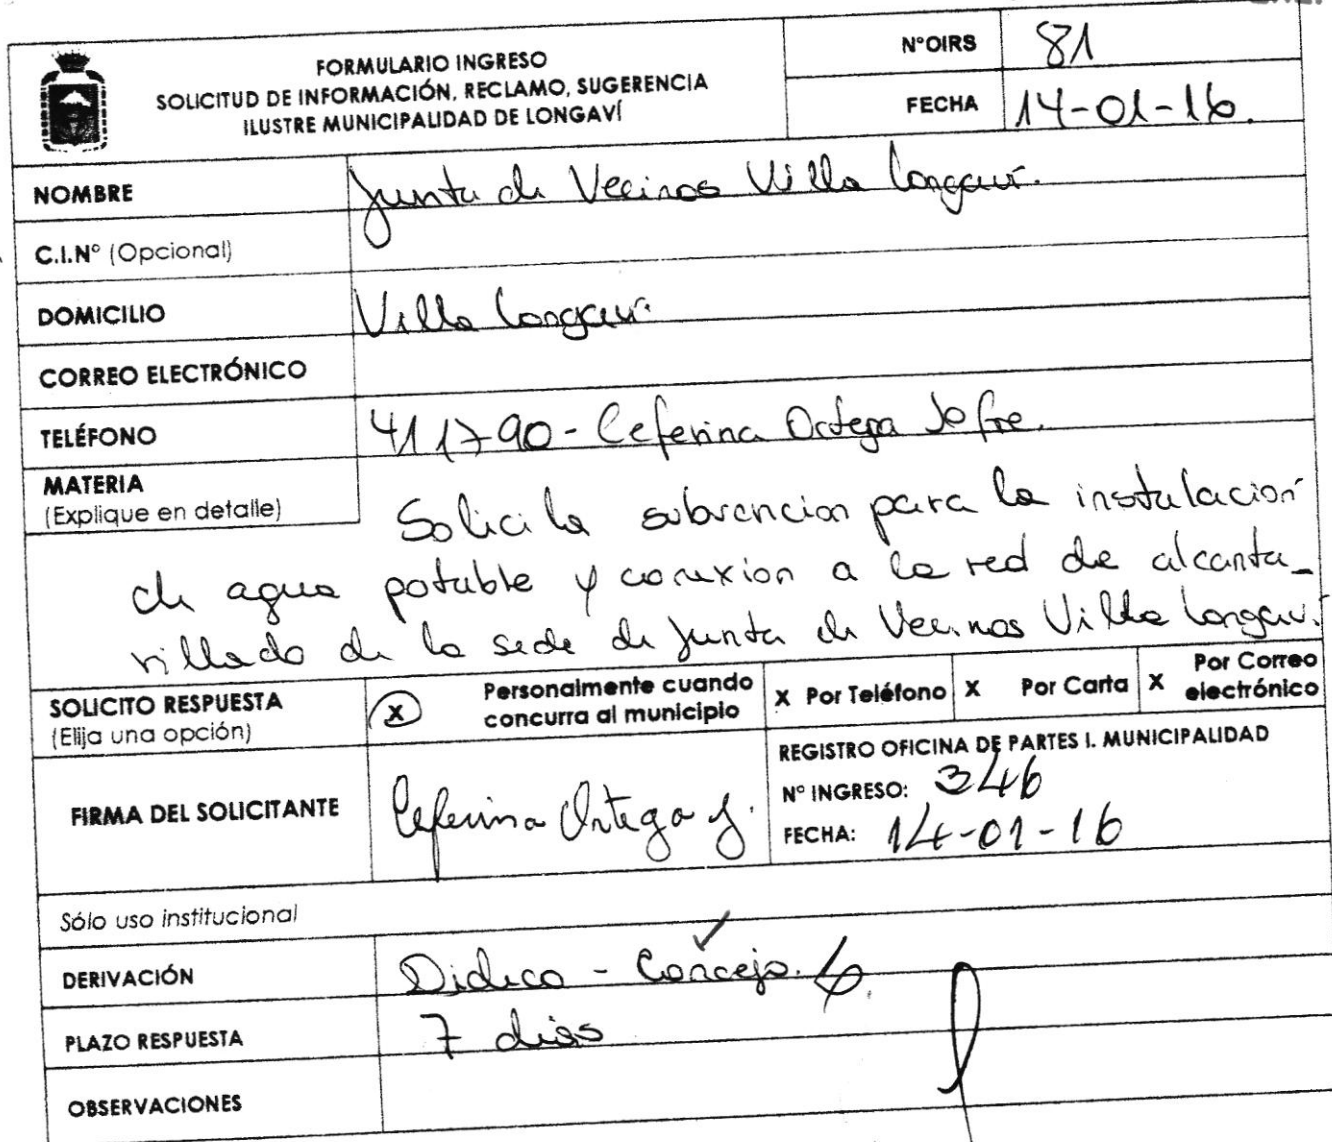 FORMULARIO INGRESO
SOLICITUD DE INFORMACIÓN, RECLAMO, SUGERENCIA
ILUSTRE MUNICIPALIDAD DE LONGAVÍ
N°OIRS 81
FECHA 14-01-16.
NOMBRE Junta de Vecinos Villa Longaví.
C.I.N° (Opcional)
DOMICILIO Villa Longaví.
CORREO ELECTRÓNICO
TELÉFONO 411790 - Ceferina Ortega Jofre.
MATERIA
(Explique en detalle)
Solicita subvencion para la instalación
de agua potable y conexion a la red de alcanta-
rillado de la sede de Junta de Vecinos Villa Longaví.
SOLICITO RESPUESTA
(Elija una opción)
X Personalmente cuando
concurra al municipio
X Por Teléfono
X Por Carta
X Por Correo
electrónico
FIRMA DEL SOLICITANTE Ceferina Ortega J.
REGISTRO OFICINA DE PARTES I. MUNICIPALIDAD
N° INGRESO: 346
FECHA: 14-01-16
Sólo uso institucional
DERIVACIÓN Dideco - Concejo.
PLAZO RESPUESTA 7 dias
OBSERVACIONES